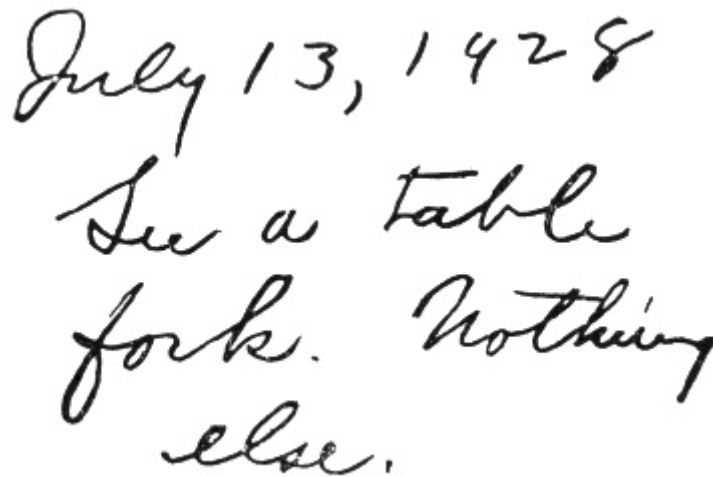 July 13, 1928
See a table
fork. Nothing
else.